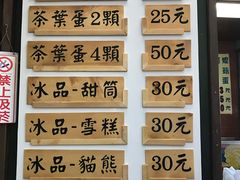 茶葉蛋2顆 25元
茶葉蛋4顆 50元
冰品-甜筒 30元
冰品-雪糕 30元
冰品-貓熊 30元
禁止吸菸